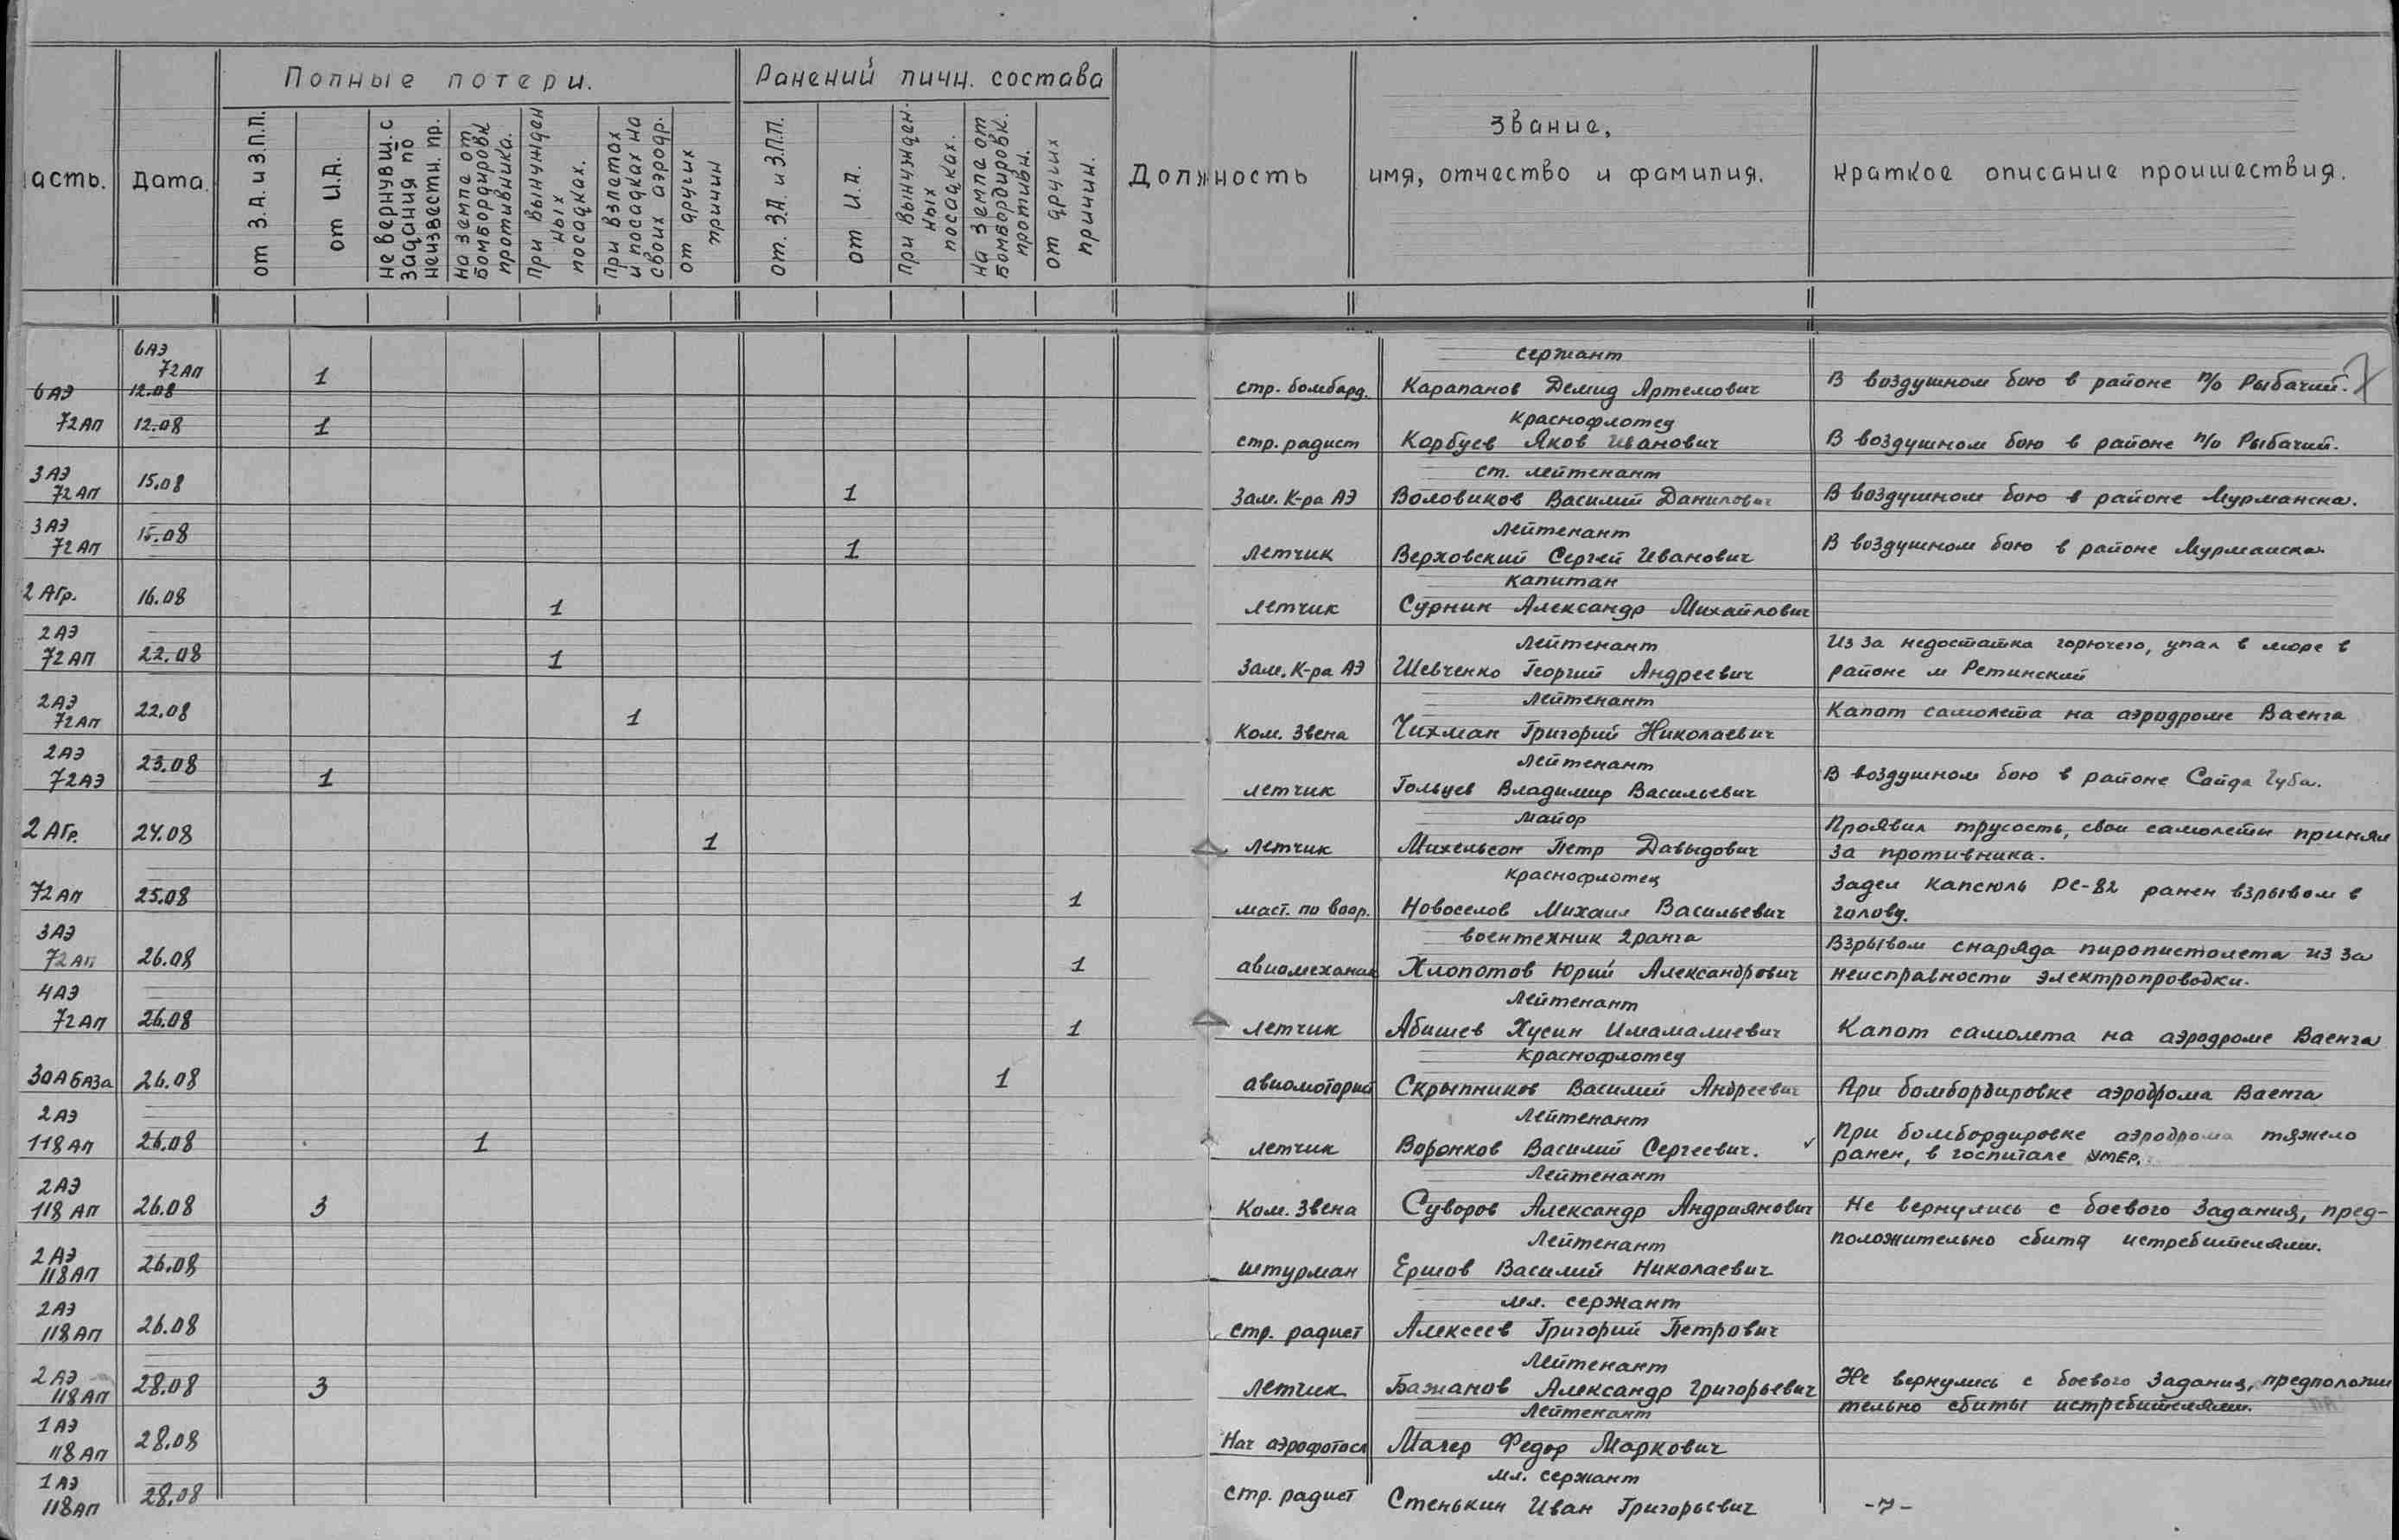 Полные потери.
Ранений личн. состава
асть.
Дата.
от З.А. и З.П.П.
от И.А.
не вернувш. с задания по неизвестн. пр.
на земле от бомбордировк противника.
При вынужден ных посадках.
При взлетах и посадках на своих аэродр.
от других причин
от. З.А. и З.П.П.
от И.А.
При вынужден. ных посадках.
на земле от бомбордировк. противн.
от других причин.
Должность
Звание,
имя, отчество и фамилия.
Краткое описание проишествия.
6АЭ
72АП
сержант
6АЭ 12.08 1 стр. бомбард. Карапанов Демид Артемович В воздушном бою в районе п/о Рыбачий.
Краснофлотец
72АП 12.08 1 стр. радист Корбуев Яков Иванович В воздушном бою в районе п/о Рыбачий.
3АЭ ст. лейтенант
72АП 15.08 1 Зам. К-ра АЭ Воловиков Василий Данилович В воздушном бою в районе Мурманска.
3АЭ лейтенант
72АП 15.08 1 Летчик Верховский Сергей Иванович В воздушном бою в районе Мурманска
капитан
2 АГр. 16.08 1 летчик Сурнин Александр Михайлович
2АЭ лейтенант Из за недостатка горючего, упал в море в
72АП 22.08 1 Зам. К-ра АЭ Шевченко Георгий Андреевич районе м Ретинский
2АЭ лейтенант
72АП 22.08 1 Ком. Звена Чихман Григорий Николаевич Капот самолета на аэродроме Ваенга
2АЭ лейтенант
72АЭ 23.08 1 летчик Гольцев Владимир Васильевич В воздушном бою в районе Сайда Губа.
майор Проявил трусость, свои самолеты принял
2 АГр. 24.08 1 Летчик Михельсон Петр Давыдович за противника.
краснофлотец Задел капсюль РС-82 ранен взрывом в
72АП 25.08 1 маст. по воор. Новоселов Михаил Васильевич голову.
3АЭ воентехник 2ранга Взрывом снаряда пиропистолета из за
72АП 26.08 1 авиамеханик Хлопотов Юрий Александрович неисправности электропроводки.
4АЭ Лейтенант
72АП 26.08 1 летчик Абишев Хусин Имамалиевич Капот самолета на аэродроме Ваенга
Краснофлотец
30А БАЗа 26.08 1 авиомоторист Скрыпников Василий Андреевич При бомбордировке аэродрома Ваенга
2АЭ Лейтенант При бомбордировке аэродрома тяжело
118АП 26.08 1 летчик Воронков Василий Сергеевич. ранен, в госпитале умер.
2АЭ Лейтенант
118АП 26.08 3 Ком. Звена Суворов Александр Андриянович Не вернулись с боевого задания, пред-
2АЭ Лейтенант положительно сбиты истребителями.
118АП 26.08 штурман Ершов Василий Николаевич
2АЭ мл. сержант
118АП 26.08 стр. радист Алексеев Григорий Петрович
2АЭ Лейтенант Не вернулись с боевого задания, предположи
118АП 28.08 3 Летчик Бажанов Александр Григорьевич тельно сбиты истребителями.
1АЭ Лейтенант
118АП 28.08 Нач аэрофотосл Магер Федор Маркович
1АЭ мл. сержант
118АП 28.08 Стр. радист Стенькин Иван Григорьевич
-7-